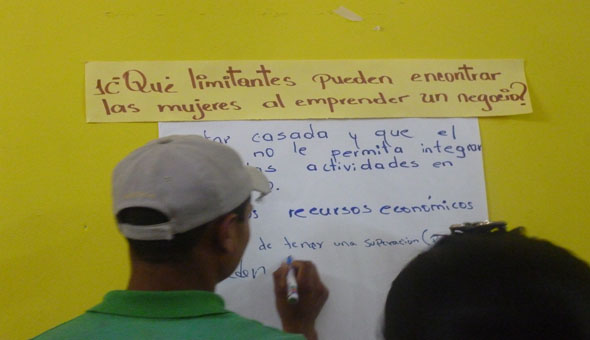 1¿Que limitantes pueden encontrar
las mujeres al emprender un negocio?
casada y que el
no le permita integrar
actividades en
recursos económicos
de tener una superacion